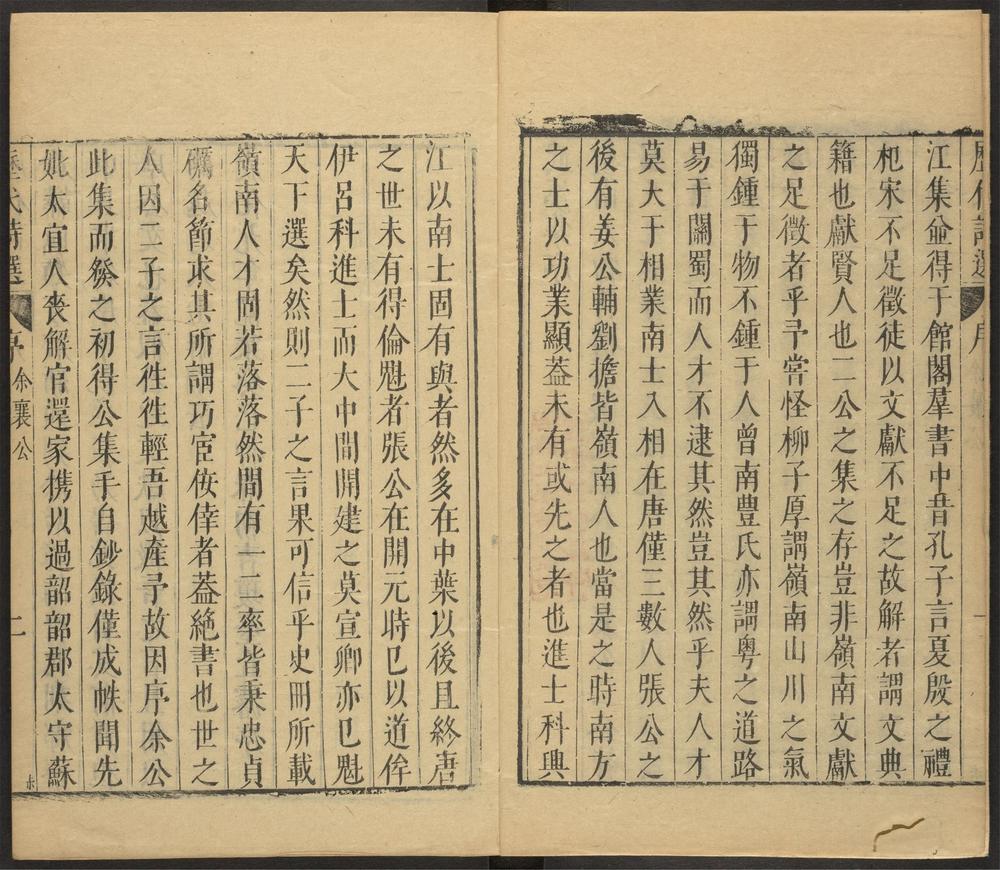 歷代詩選
序
江集並得于館閣羣書中昔孔子言夏殷之禮
杞宋不足徵徒以文獻不足之故解者謂文典
籍也獻賢人也二公之集之存豈非嶺南文獻
之足徵者乎予嘗怪柳子厚謂嶺南山川之氣
獨鍾于物不鍾于人曾南豐氏亦謂粤之道路
易于闽蜀而人才不逮其然豈其然乎夫人才
莫大于相業南士入相在唐僅三數人張公之
後有姜公輔劉擔皆嶺南人也當是之時南方
之士以功業顯蓋未有或先之者也進士科興
江以南士固有與者然多在中葉以後且終唐
之世未有得倫魁者張公在開元時已以道侔
伊呂科進士而大中間開建之莫宣卿亦已魁
天下選矣然則二子之言果可信乎史冊所載
嶺南人才固若落落然間有一二率皆秉忠貞
礪名節求其所謂巧宦佞倖者葢絶書也世之
人因二子之言徃徃輕吾越產予故因序余公
此集而發之初得公集手自鈔錄僅成帙聞先
妣太宜人喪解官還家携以過韶韶郡太守蘇
歷代詩選
序
余襄公
二